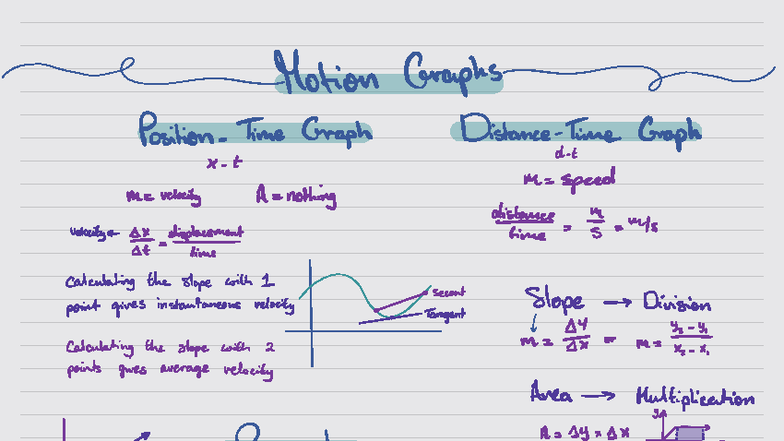 Motion Graphs
Position-Time Graph
x-t
m = velocity A = nothing
velocity = Δx/Δt = displacement/time
Calculating the slope with 1
point gives instantaneous velocity
Calculating the slope with 2
points gives average velocity
Secant
Tangent
Distance-Time Graph
d-t
m = speed
distance/time = m/s = m/s
Slope → Division
m = Δy/Δx = m = y₂-y₁/x₂-x₁
Area → Multiplication
A = Δy × Δx